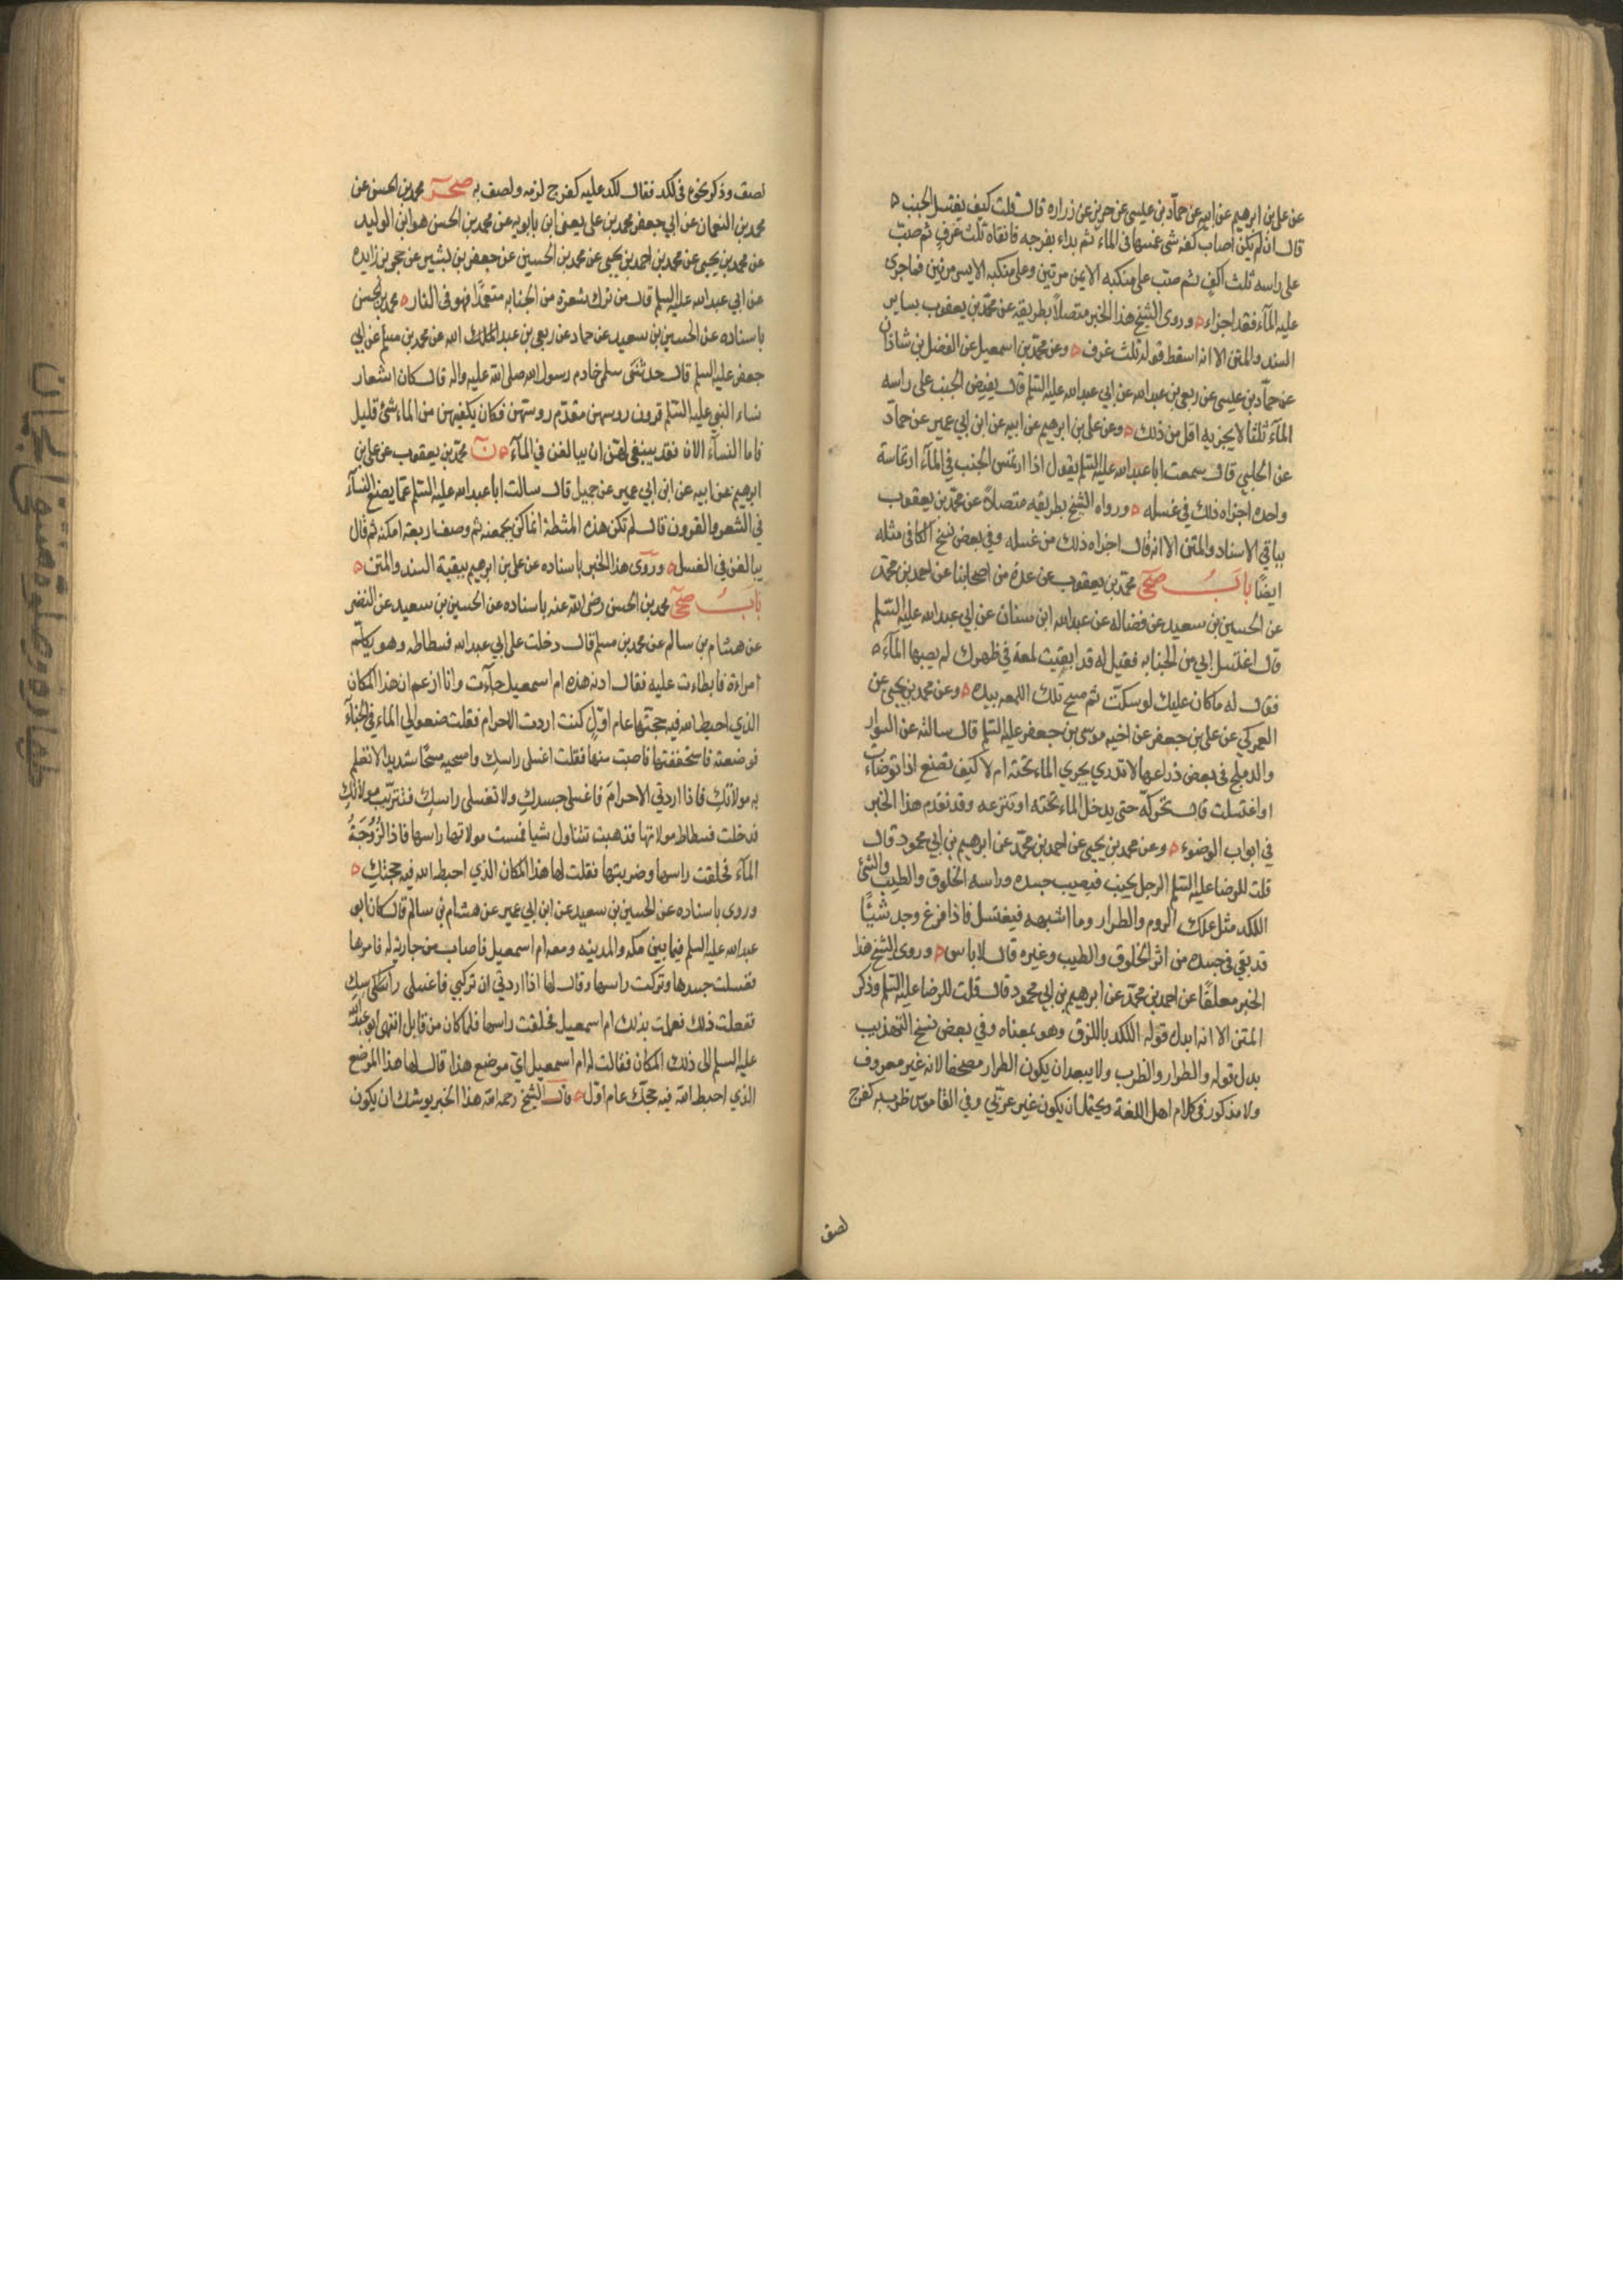 عن علي بن ابرهيم عن ابيه عن حماد بن عيسى عن حريز عن زراره قال قلت كيف يغتسل الجنب
قال ان لم يكن اصاب كفه شئ غمسها في الماء ثم بداء بفرجه فانقاه ثلث غرف ثم صب
على راسه ثلث اكف ثم صب على منكبه الايمن مرتين وعلى منكبه الايسر مرتين فما جرى
عليه المآء فقد اجزاء وروى الشيخ هذا الخبر متصلاً بطريقه عن محمد بن يعقوب بساير
السند والمتن الا انه اسقط قوله ثلث غرف وعن محمد بن اسمعيل عن الفضل بن شاذان
عن حماد بن عيسى عن ربعي بن عبدالله عن ابي عبدالله عليه السلم قال يفيض الجنب على راسه
المآء ثلثا لا يجزيه اقل من ذلك وعن علي بن ابرهيم عن ابيه عن ابن ابي عمير عن حماد
عن الحلبي قال سمعت ابا عبدالله عليه السلم يقول اذا ارتمس الجنب في المآء ارتماسة
واحده اجزاه ذلك في غسله ورواه الشيخ بطريقه متصلاً عن محمد بن يعقوب
بباقي الاسناد والمتن الا انه قال اجزاه ذلك من غسله وفي بعض نسخ الكافي مثله
ايضًا باب صحي محمد بن يعقوب عن عدة من اصحابنا عن احمد بن محمد
عن الحسين بن سعيد عن فضاله عن عبدالله ابن سنان عن ابي عبدالله عليه السلم
قال اغتسل ابي من الجنابه فقيل له قد ابقيت لمعة في ظهرك لم يصبها المآء
فقال له ما كان عليك لو سكت ثم مسح تلك اللمعه بيده وعن محمد بن يحيى عن
العمركي عن علي بن جعفر عن اخيه موسى بن جعفر عليه السلم قال سالته عن السوار
والدملج في بعض ذراعها لا تدري يجري الماء تحته ام لا كيف تصنع اذا توضات
او اغتسلت قال تحركه حتى يدخل الماء تحته او تنزعه وقد تقدم هذا الخبر
في ابواب الوضوء وعن محمد بن يحيى عن احمد بن محمد عن ابرهيم بن ابي محمود قال
قلت للرضا عليه السلم الرجل يجنب فيصيب جسده وراسه الخلوق والطيب والشئ
اللكد مثل علك الروم والطرار وما اشبهه فيغتسل فاذا فرغ وجد شيئًا
قد بقي في جسده من اثر الخلوق والطيب وغيره قال لا باس وروى الشيخ هذا
الخبر معلقًا عن احمد بن محمد عن ابرهيم بن ابي محمود قال قلت للرضا عليه السلم وذكر
المتن الا انه ابدل قوله اللكد باللزق وهو بمعناه وفي بعض نسخ التهذيب
بدل قوله والطرار والظرب ولا يبعد ان يكون الطرار مصحفا لانه غير معروف
ولا مذكور في كلام اهل اللغة ويحتمل ان يكون غير عربي وفي القاموس ظرب به كفرح
لصق
لصق وذكر نحوه في لكد فقال لكد عليه كفرح لزمه ولصق به صحر محمد بن الحسن عن
محمد بن النعمان عن ابي جعفر محمد بن علي يعني ابن بابويه عن محمد بن الحسن هو ابن الوليد
عن محمد بن يحيى عن محمد بن احمد بن يحيى عن محمد بن الحسين عن جعفر بن بشير عن حجر بن زايده
عن ابي عبدالله عليه السلم قال من ترك شعرة من الجنابه متعمدًا فهو في النار محمد بن الحسن
باسناده عن الحسين بن سعيد عن حماد عن ربعي بن عبد الله عن محمد بن مسلم عن ابي
جعفر عليه السلم قال حدثتني سلمى خادم رسول الله صلى الله عليه واله قال كان اشعار
نساء النبي عليه السلم قرون روسهن مقدم روسهن فكان يكفيهن من الماء شئ قليل
فاما النسآء الان فقد ينبغي لهن ان يبالغن في المآء ن محمد بن يعقوب عن علي بن
ابرهيم عن ابيه عن ابن ابي عمير عن جميل قال سالت ابا عبدالله عليه السلم عما يصنع النسآء
في الشعر والقرون قال لم تكن هذه المشطة انما كن يجمعنه ثم وصف اربعة امكنه ثم قال
يبالغن في الغسل وروى هذا الخبر باسناده عن علي بن ابرهيم ببقية السند والمتن
باب صحي محمد بن الحسن رضي الله عنه باسناده عن الحسين بن سعيد عن النضر
عن هشام بن سالم عن محمد بن مسلم قال دخلت على ابي عبدالله فسطاطه وهو يكلم
امراءة فابطاءت عليه فقال ادنه هذه ام اسمعيل جآءت وانا ازعم ان هذا المكان
الذي احبط الله فيه حجتها عام اول كنت اردت الاحرام فقلت ضعوا لي الماء في الخبآء
فوضعته فاستخففتها فاصبت منها فقلت اغسلي راسك وامسحيه مسحًا شديدا لا تعلم
به مولاتك فاذا اردتي الاحرام فاغسلي جسدك ولا تغسلي راسك فتستريب مولاتك
فدخلت فسطاط مولاتها فذهبت تتناول شيا فمست مولاتها راسها فاذا لزوجة
المآء فحلقت راسها وضربتها فقلت لها هذا المكان الذي احبط الله فيه حجتك
وروى باسناده عن الحسين بن سعيد عن ابن ابي عمير عن هشام بن سالم قال كان ابو
عبدالله عليه السلم فيما بين مكه والمدينه ومعه ام اسمعيل فاصاب من جارية له فامرها
فغسلت جسدها وتركت راسها وقال لها اذا اردتي ان تركبي فاغسلي راسك
ففعلت ذلك فعلمت بذلك ام اسمعيل فحلقت راسها فلما كان من قابل انتهى ابو عبدالله
عليه السلم الى ذلك المكان فقالت له ام اسمعيل اي موضع هذا قال لها هذا الموضع
الذي احبط الله فيه حجك عام اول قال الشيخ رحمه الله هذا الخبر يوشك ان يكون